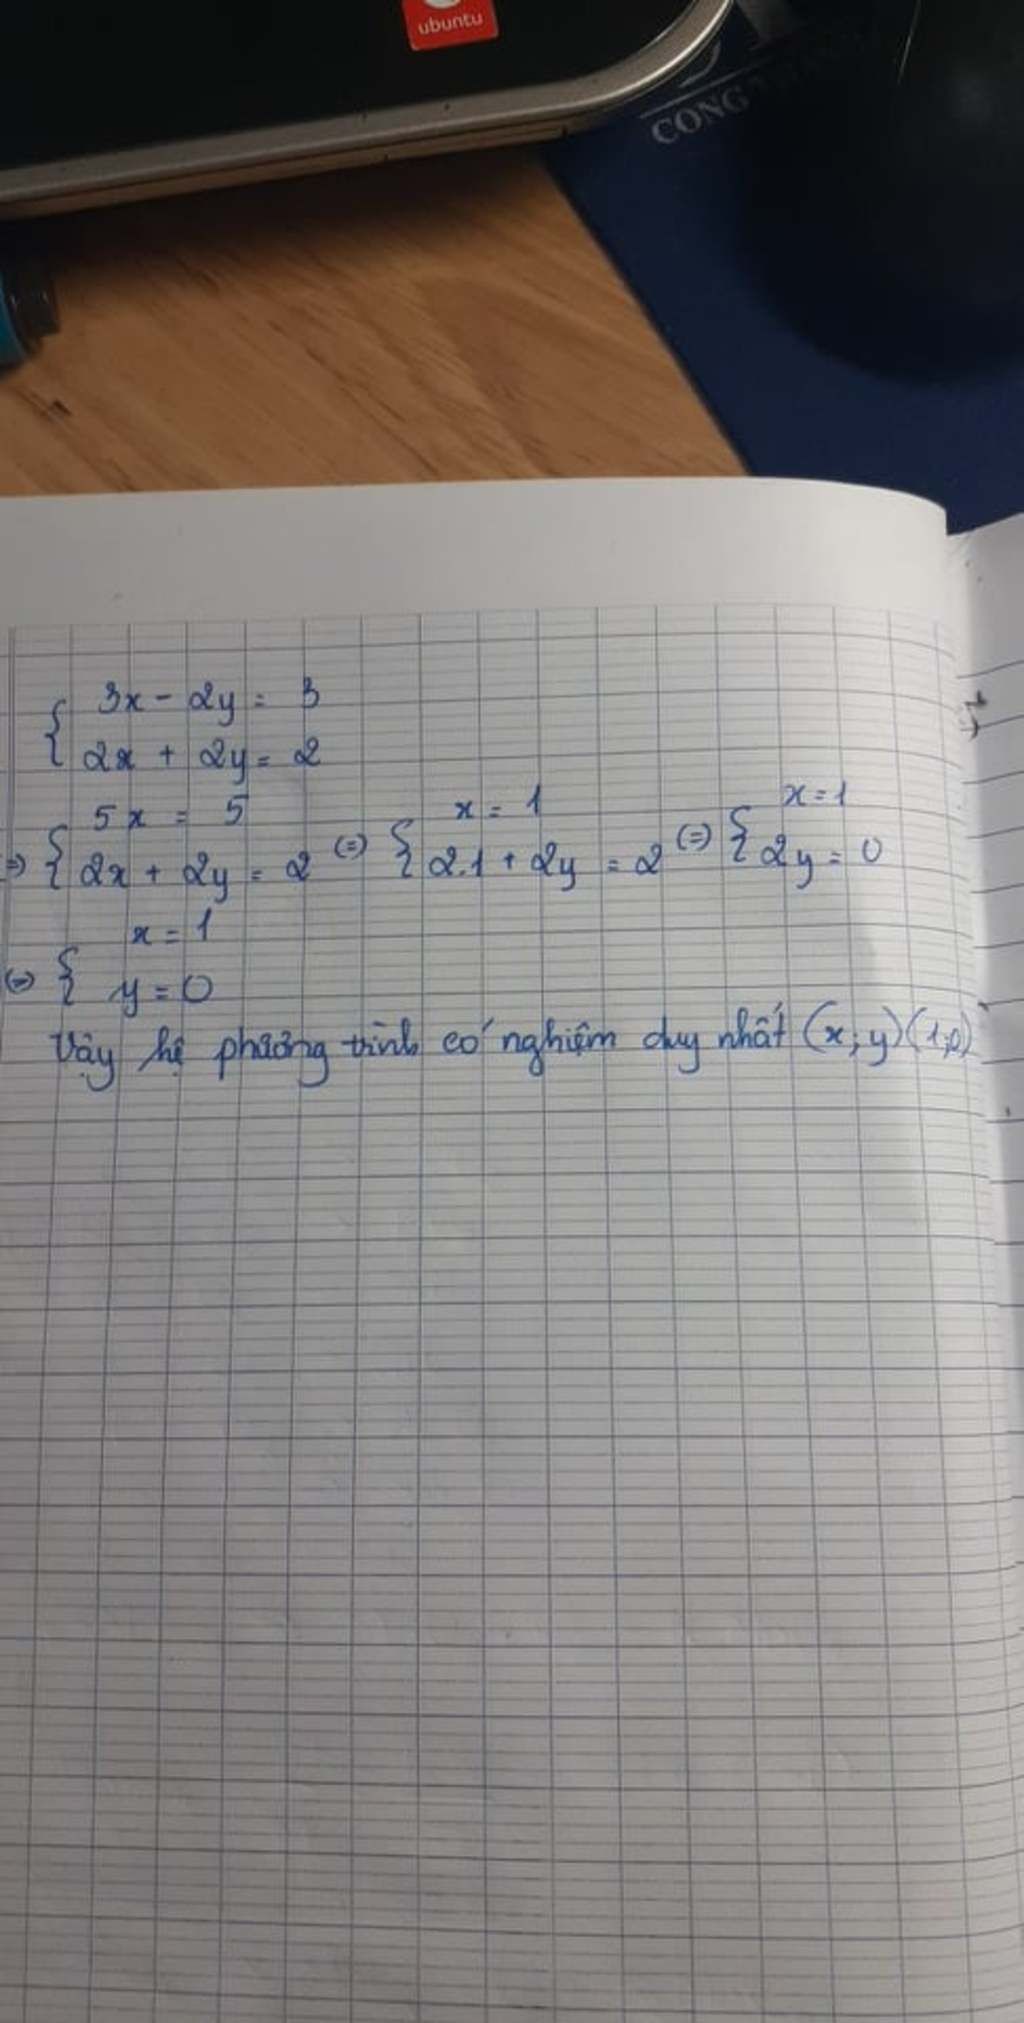 ubuntu
CONG
{ 3x - 2y = 3
2x + 2y = 2
=) { 5x = 5 (=) { x = 1 (=) { x = 1
2x + 2y = 2 2.1 + 2y = 2 2y = 0
(=) { x = 1
y = 0
Vậy hệ phương trình có nghiệm duy nhất (x; y)(1;0)